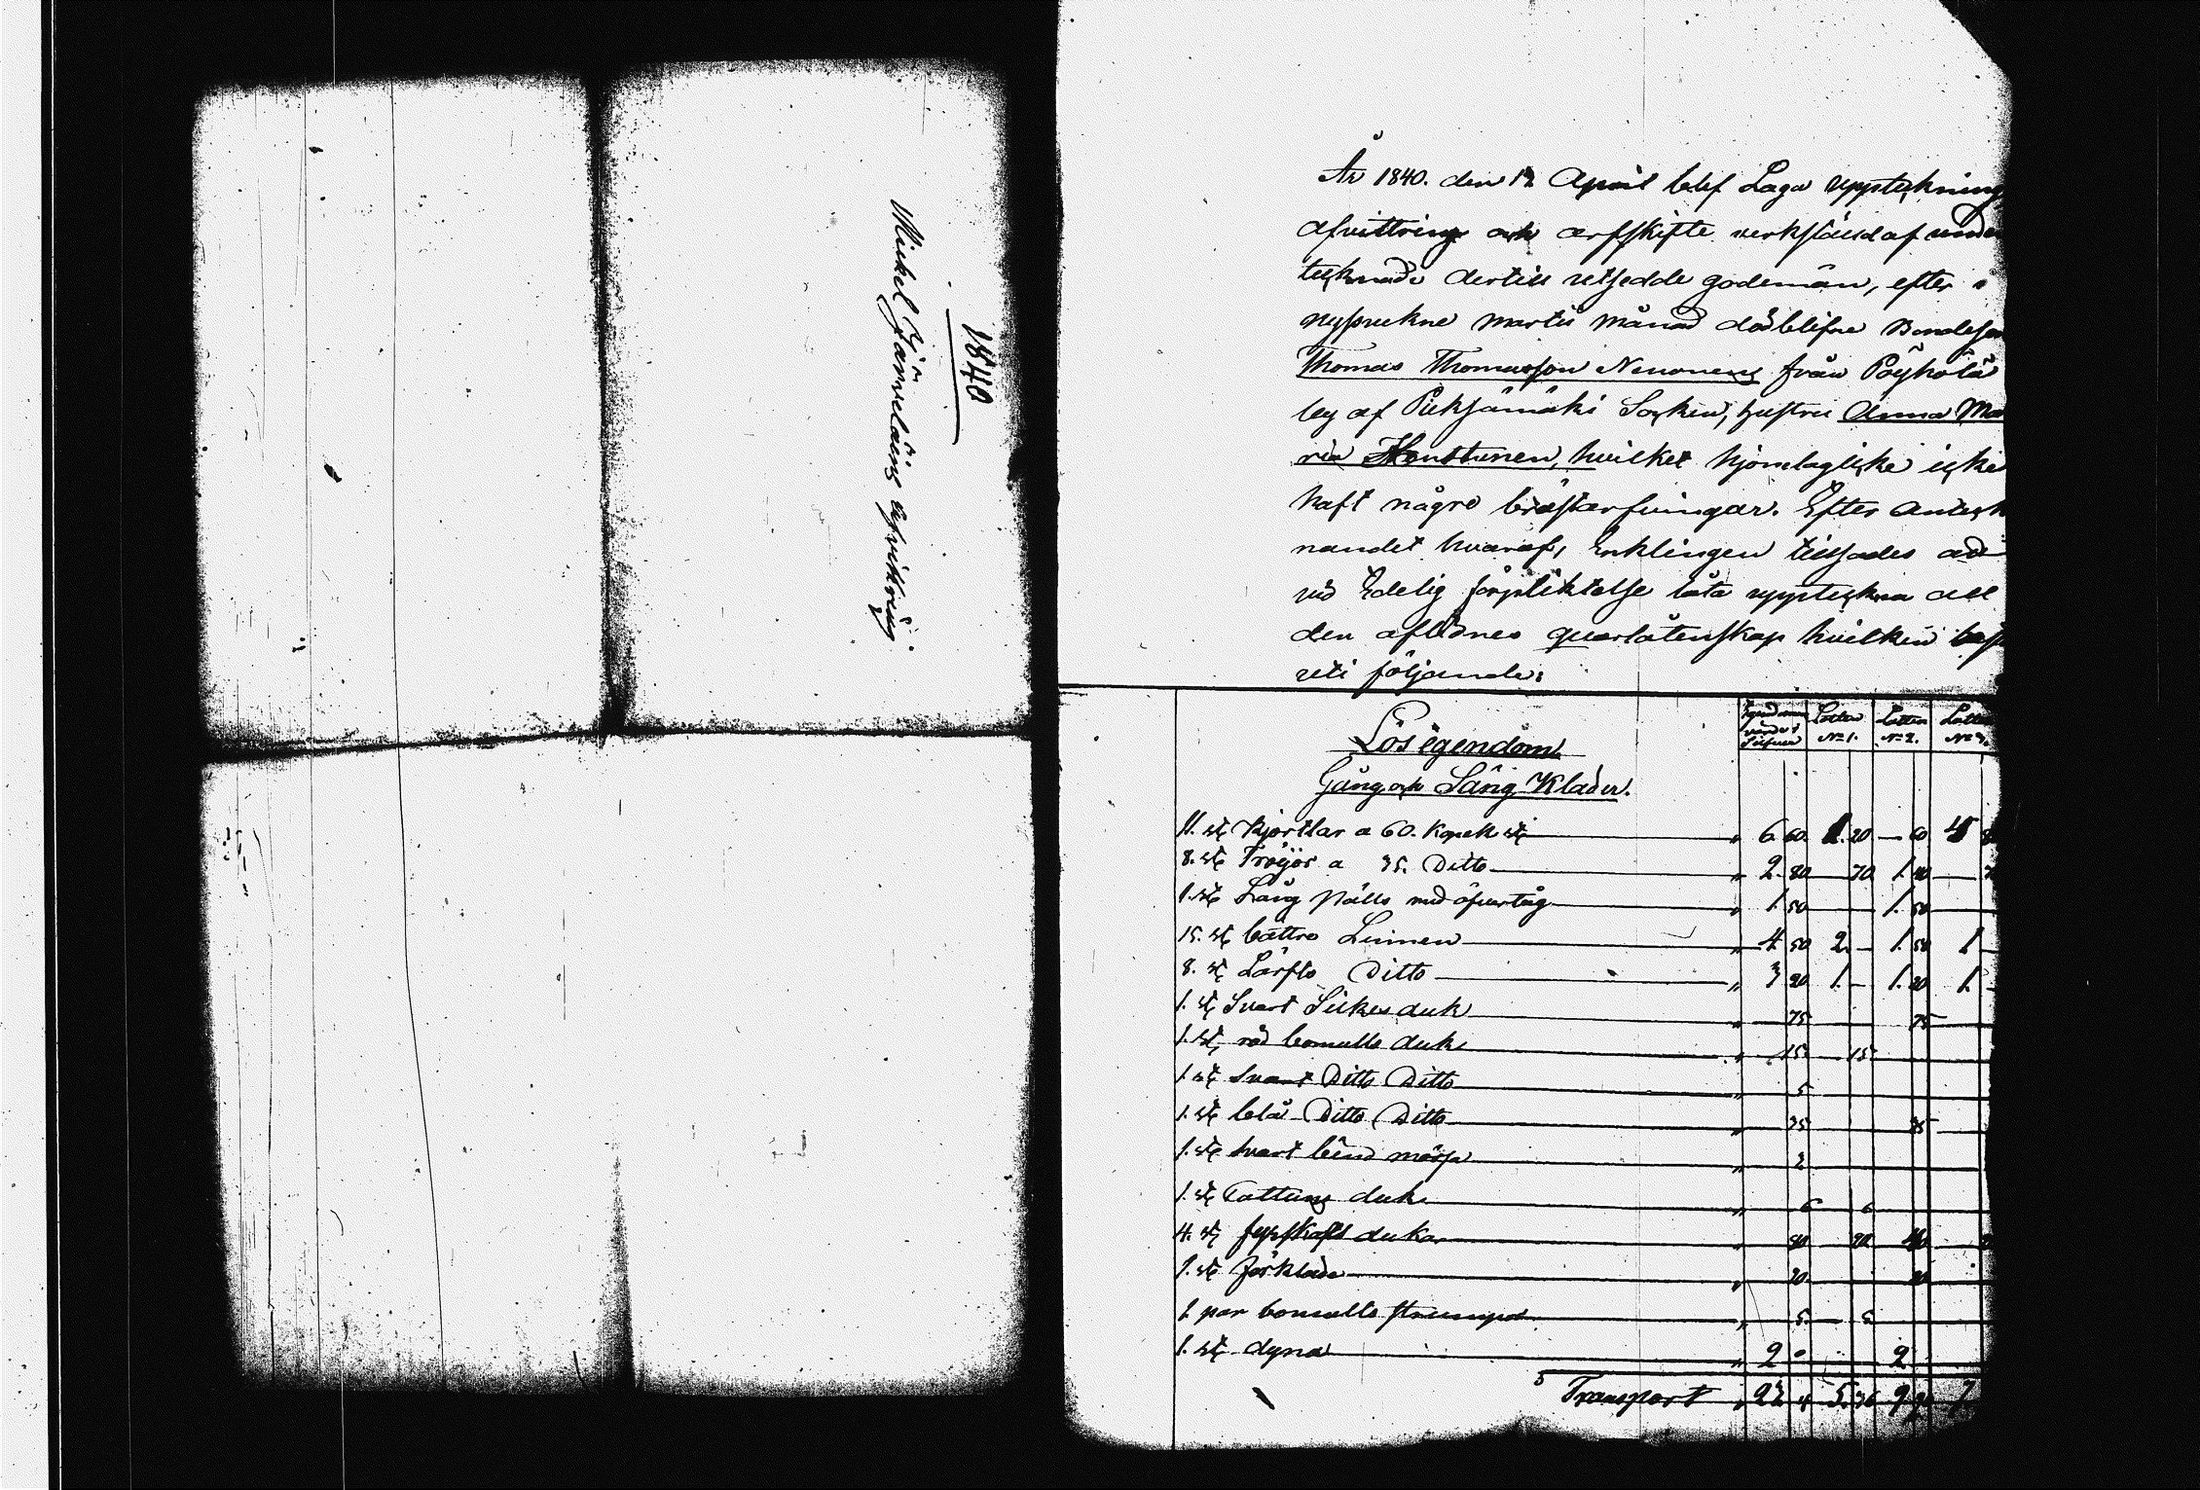 1840
Mickel Jämseläing afvittring.
År 1840. den 12 April blef Laga uppteckning,
afvittring och arfskifte verkstäld af under
tecknade dertill utsedde godemän, efter i
nyssvekne Martii Månad död blifne Bondeson
Thomas Thomasson Nenonens från Pöyhölä
by af Pieksämäki Socken, hustru Anna Ma
ria Hänttinen, hvilket hjonelag icke
haft några bröstarfvingar. Efter anteck
nandet hvaraf, Enklingen tillsades att
vid Edelig förpliktelse låta uppteckna all
den aflidnes quarlåtenskap hvilken best
uti följande:
Lös egendom
Gång och Säng Kläder.
Lotten No 1. Lotten No 2. Lotten No 3.
11. st Kjortlar a 60. Kopek st " 6 60 1. 20 — 60 4
8. st Tröjor a 35. Ditto " 2 80 70 1. 40
1. st Lång Pälts med öfvertåg " 1 50 1. 50
15. st bättre Linnen " 4 50 2. — 1. 50 1
8. st Lärfts Ditto " 3 20 1. — 1. 20 1. —
1. st Svart Silkes duk " 75 75
1. st röd bomulls duk " 15 15
1 st Svart Ditto Ditto " 5
1. st blå Ditto Ditto " 35 35
1. st svart bind mössa " 2
1. st Cattuns duk " 6 6
4. st fyrskafts dukar " 80 20 40
1. st förkläde " 20 20
1 par bomulls strumpor " 5 5
1. st dyna " 2 " 2
Transport " 23